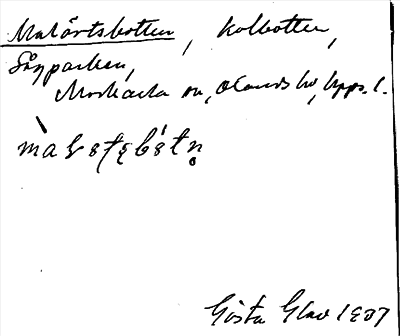 Malörtsbotten, Kolbotten,
Sågparken,
Morkarla sn, Olands hd, Uppl.
Gösta Glav 1937